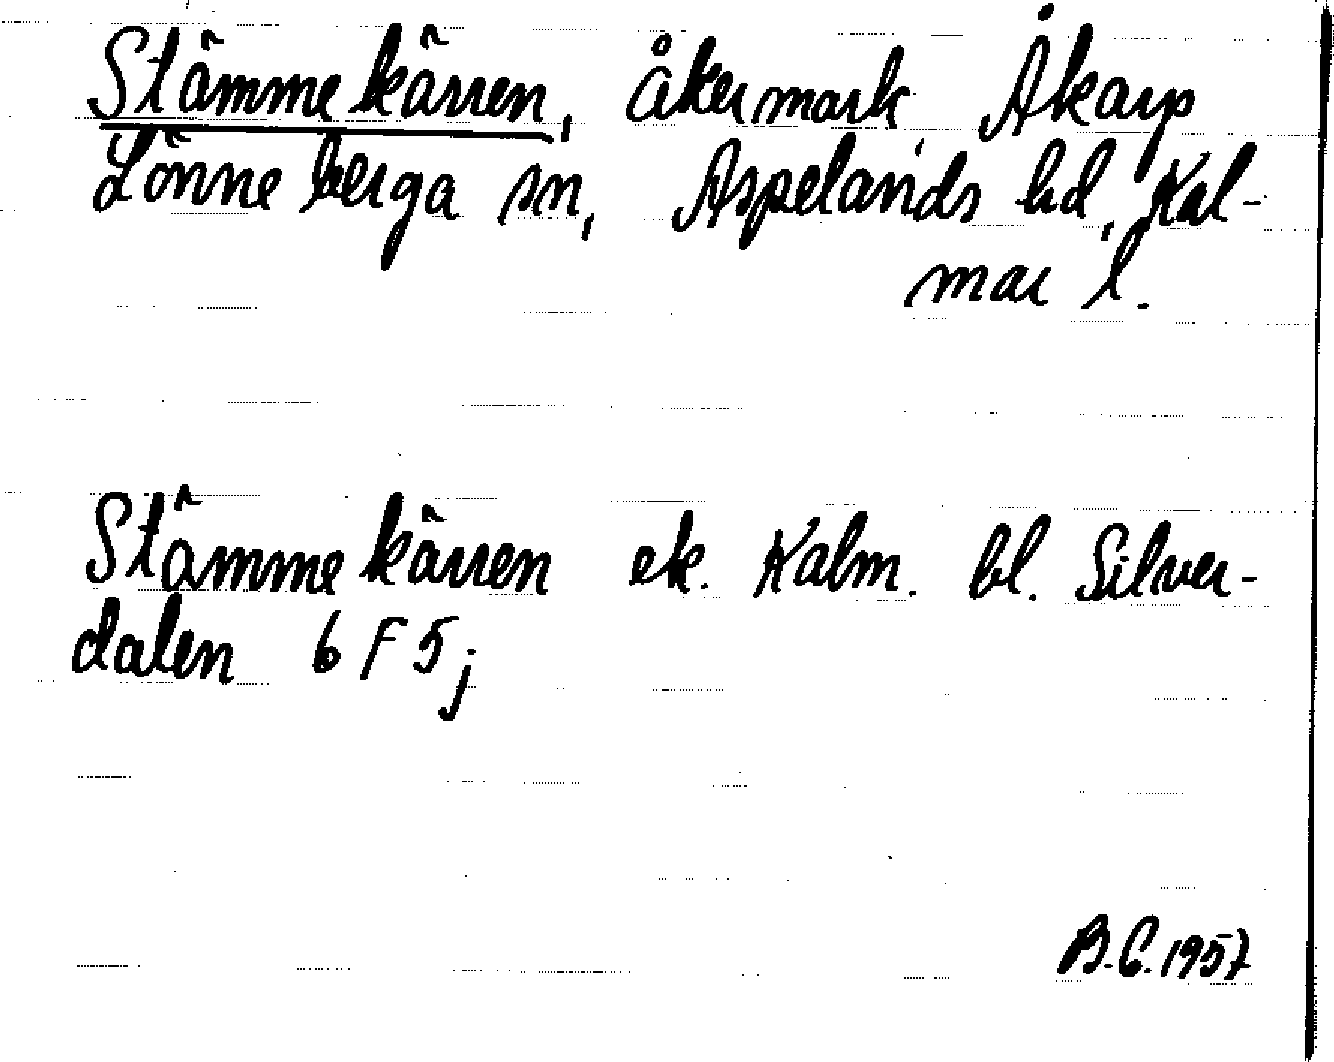 Stämmekärren, åkermark, Åkarp
Lönneberga sn, Aspelands hd, Kal-
mar l.
Stämmekärren ek. Kalm. bl. Silver-
dalen 6 F 5 j
B.C. 1957